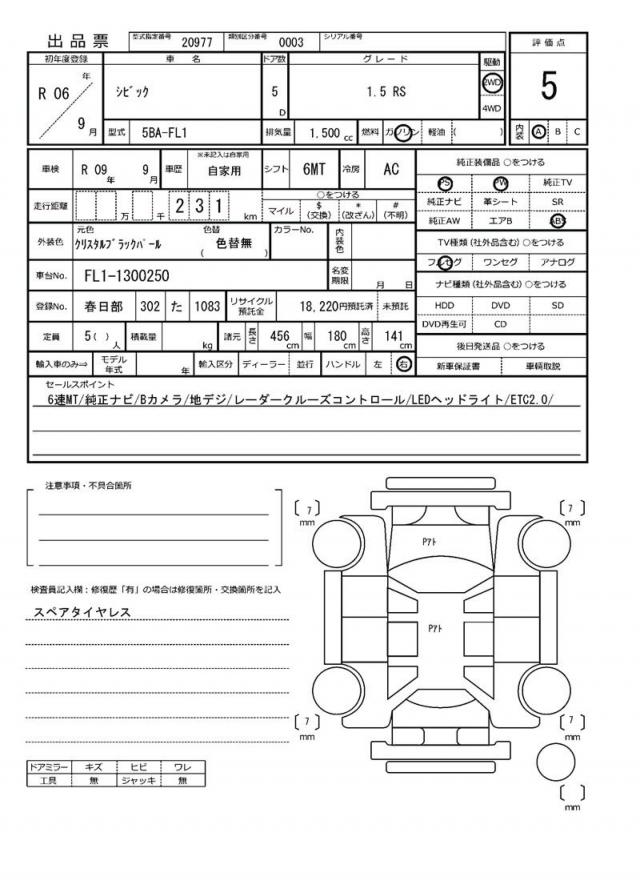 出品票 型式指定番号 20977 類別区分番号 0003 シリアル番号
評価点
5
内装 A B C
初年度登録 車名 ドア数 グレード 駆動
R 06 年 9 月 シビック 5 D 1.5 RS 2WD 4WD
型式 5BA-FL1 排気量 1.500 cc 燃料 ガソリン 軽油 ( )
車検 R 09 年 9 月 車歴 ※未記入は自家用 自家用 シフト 6MT 冷房 AC
走行距離 万 千 2 3 1 km ○をつける マイル $(交換) *(改ざん) #(不明)
外装色 元色 クリスタルブラックパール 色替 ( 色替無 ) カラーNo. 内装色
車台No. FL1-1300250 名変期限 月 日
登録No. 春日部 302 た 1083 リサイクル預託金 18,220円預託済 未預託
定員 5( ) 人 積載量 kg 諸元 長さ 456 cm 幅 180 cm 高さ 141 cm
輸入車のみ⇒ モデル年式 年 輸入区分 ディーラー 並行 ハンドル 左 右
純正装備品 ○をつける
PS PW 純正TV
純正ナビ 革シート SR
純正AW エアB ABS
TV種類(社外品含む) ○をつける
フルセグ ワンセグ アナログ
ナビ種類(社外品含む) ○をつける
HDD DVD SD
DVD再生可 CD
後日発送品 ○をつける
新車保証書 車輌取説
セールスポイント
6速MT/純正ナビ/Bカメラ/地デジ/レーダークルーズコントロール/LEDヘッドライト/ETC2.0/
注意事項・不具合箇所
検査員記入欄:修復歴「有」の場合は修復箇所・交換箇所を記入
スペアタイヤレス
ドアミラー キズ ヒビ ワレ
工具 無 ジャッキ 無
〔 7 〕 mm
〔 7 〕 mm
Pアト
Pアト
〔 7 〕 mm
〔 7 〕 mm
〔 〕 mm